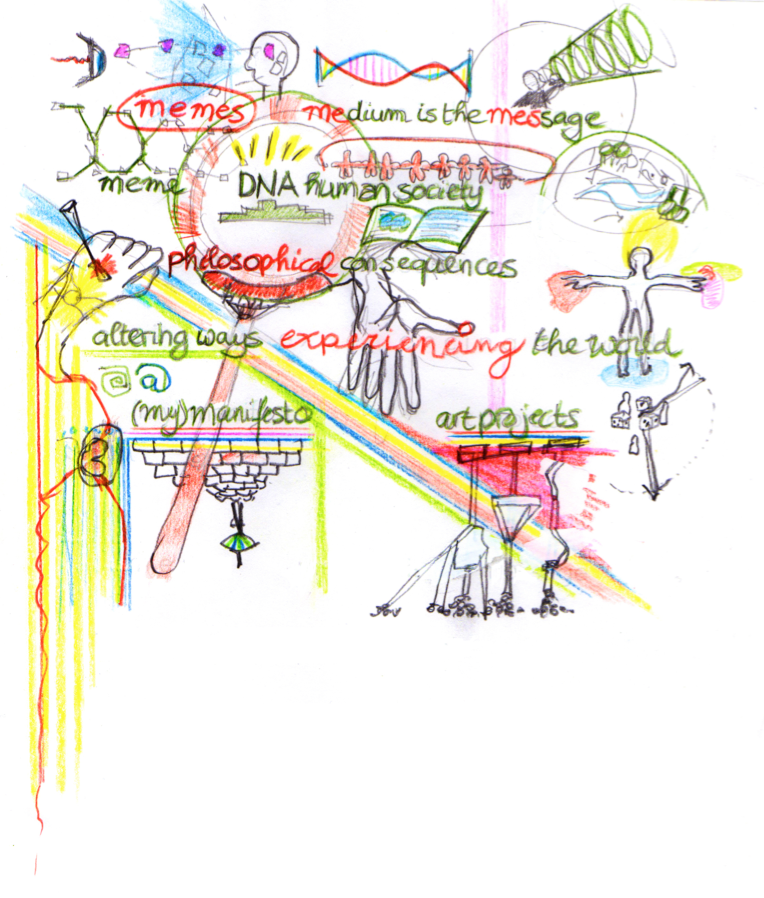 memes medium is the message
meme DNA human society
philosophical consequences
altering ways experiencing the world
@
(my)manifesto art projects